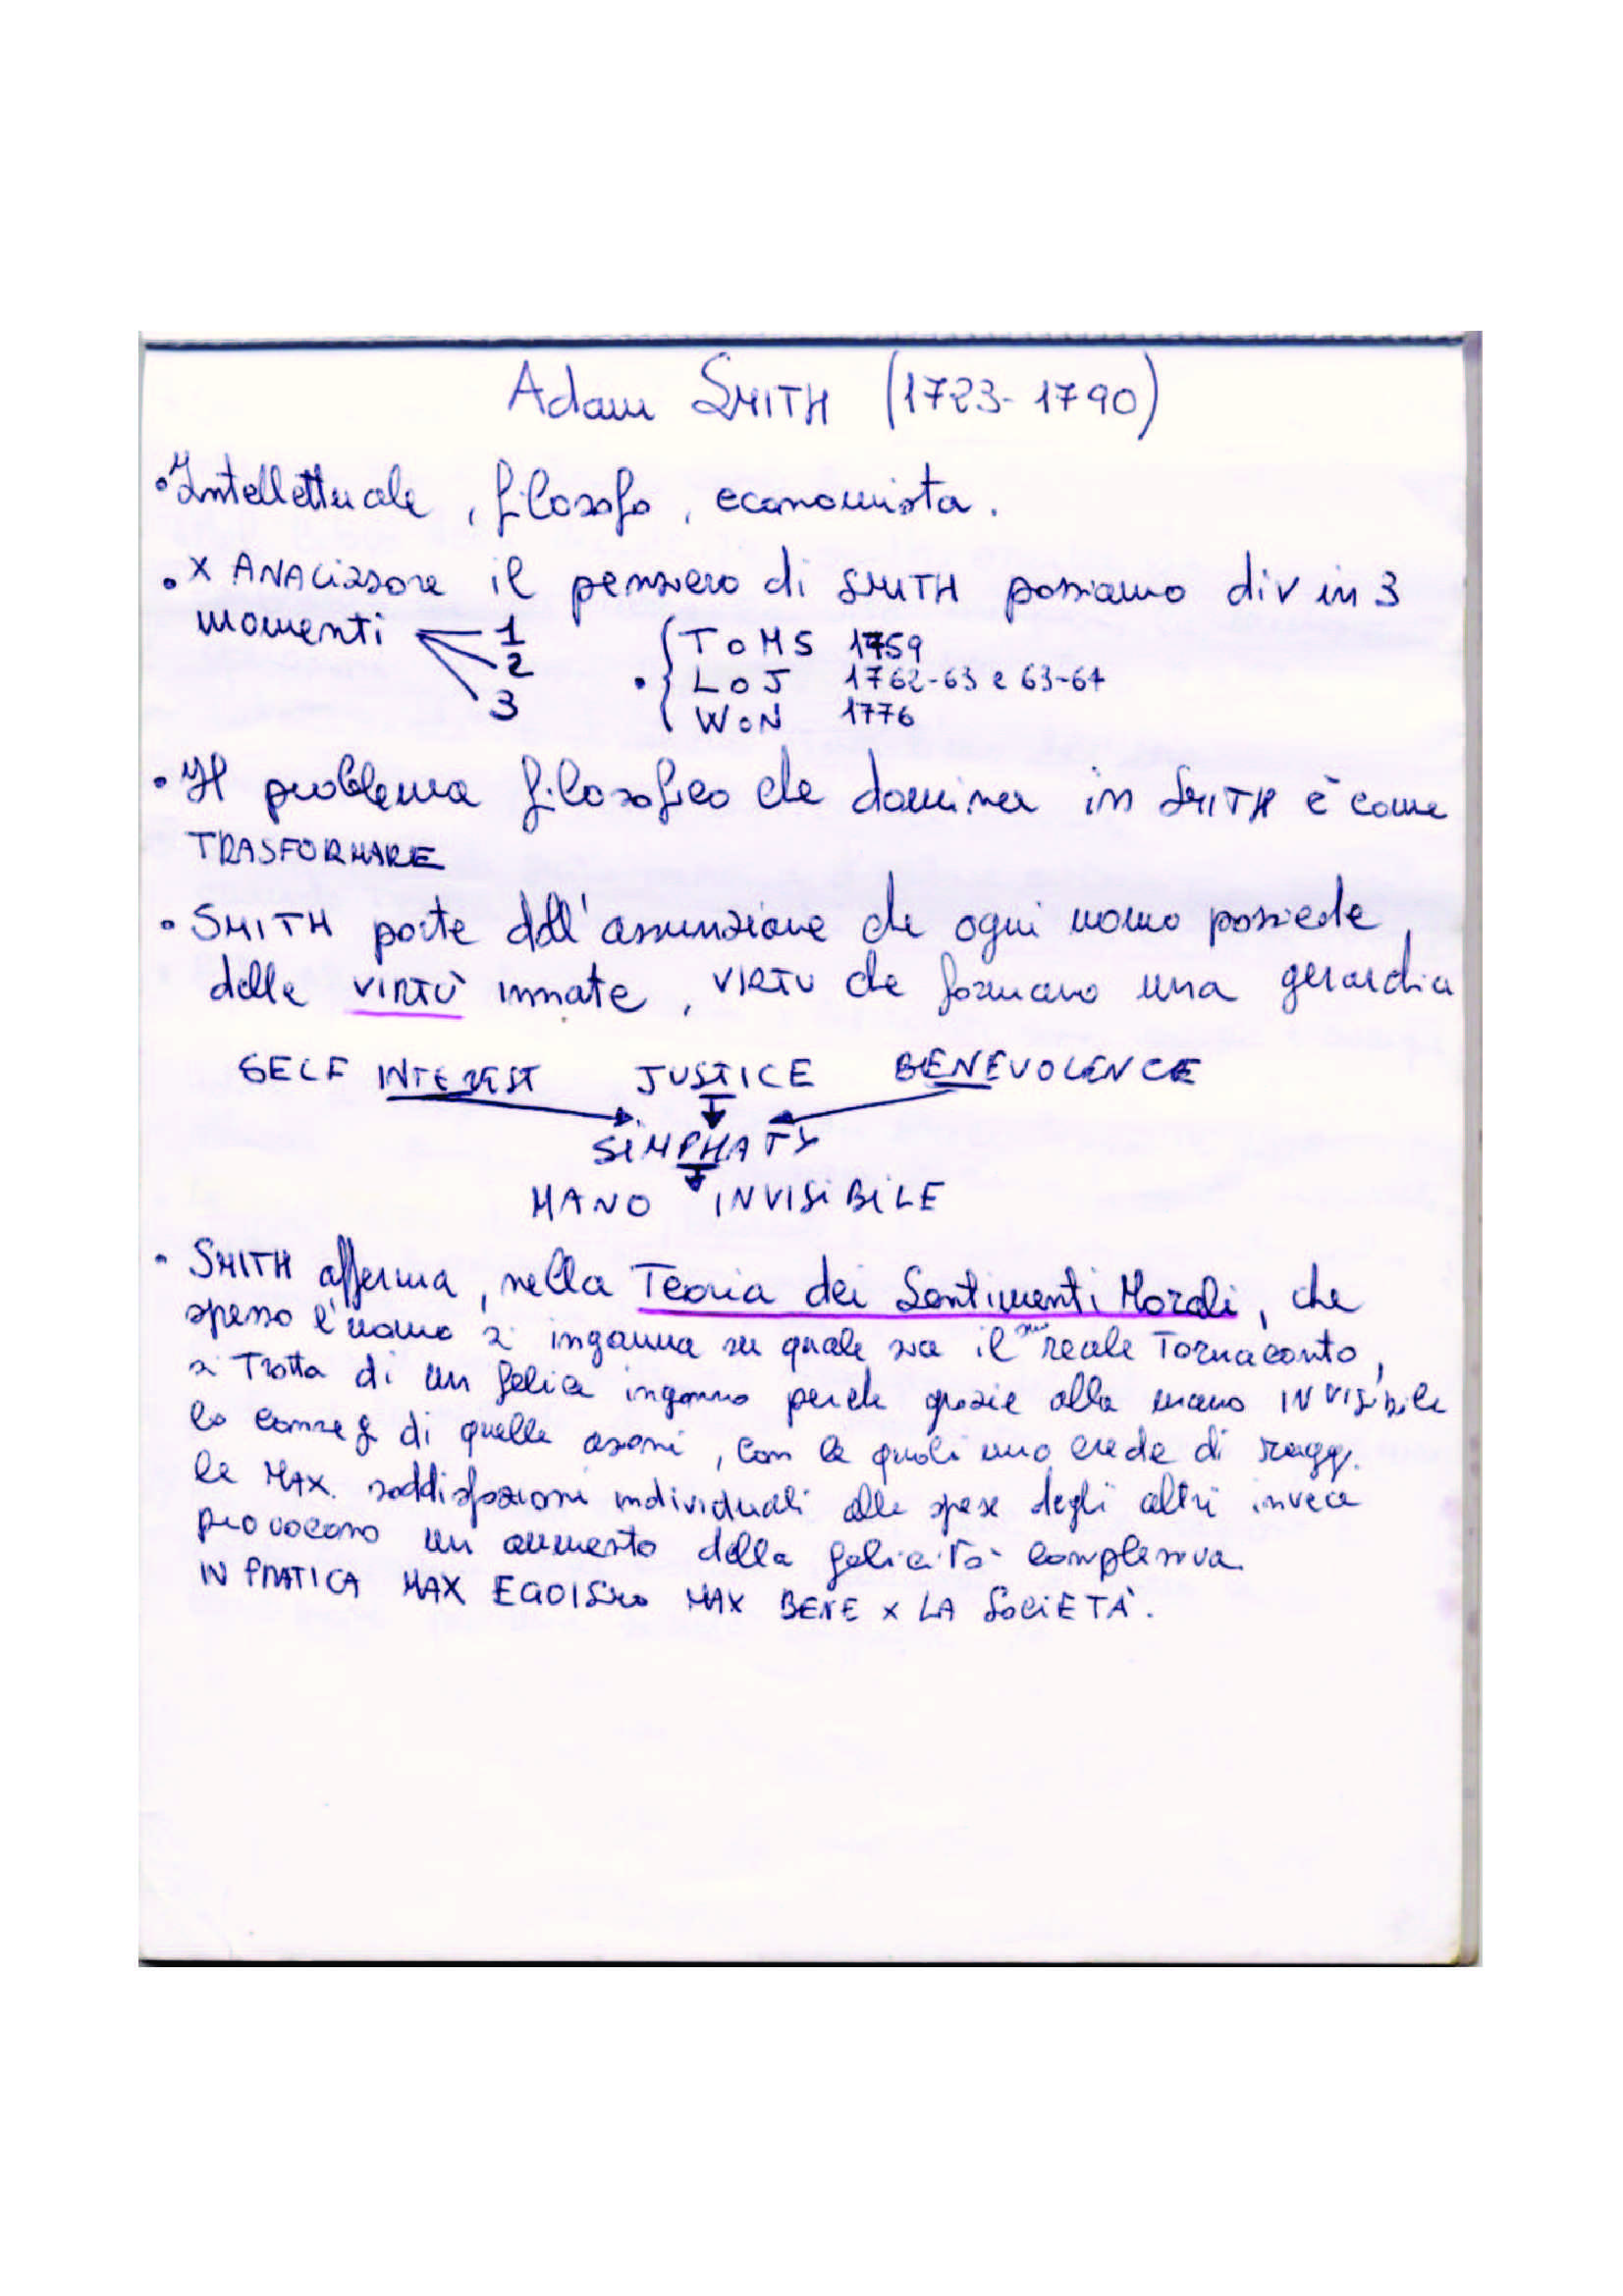 Adam SMITH (1723-1790)
• Intellettuale, filosofo, economista.
• X ANALizzare il pensiero di SMITH possiamo div in 3
momenti 1
2
3
• { ToMS 1759
LoJ 1762-63 e 63-64
WoN 1776
• Il problema filosofico che domina in SMITH è come
TRASFORMARE
• SMITH parte dall'assunzione che ogni uomo possiede
delle VIRTÙ innate, VIRTU che formano una gerardia
SELF INTEREST JUSTICE BENEVOLENCE
SiMPHATY
MANO INVISiBiLE
• SMITH afferma, nella Teoria dei Sentimenti Morali, che
spesso l'uomo si inganna su quale sia il suo reale Tornaconto,
si Tratta di un felice inganno perchè grazie alla mano INVISibile
le conseg di quelle azioni, con le quali uno crede di ragg.
le MAX. soddisfazioni individuali alle spese degli altri invece
provocano un aumento della felicità complessiva
IN PRATICA MAX EGOISmo MAX BENE x LA SociETÀ.